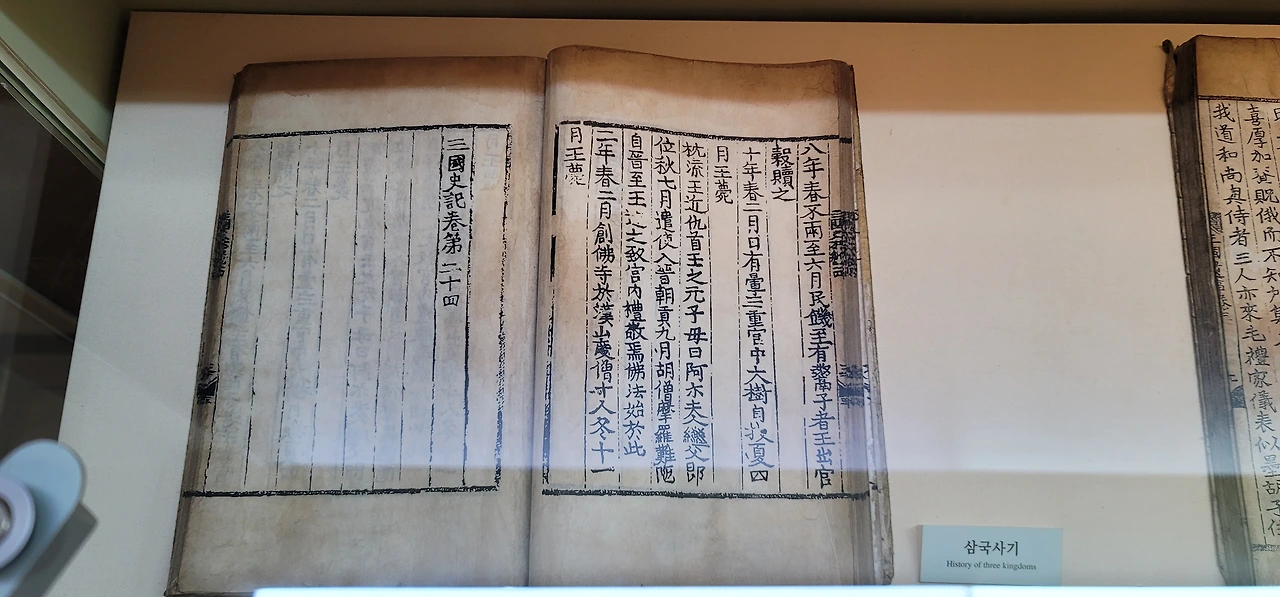 喜厚加 貺俄而不知
我道和尚眞侍者三人亦來毛禮家儀表似墨胡子住
八年春不雨至六月民饑至有鬻子者王出官
穀贖之
十年春二月日有暈三重宮中大樹自拔夏四
月王薨
枕流王近仇首王之元子母曰阿尒夫人繼父即
位秋七月遣使入晉朝貢九月胡僧摩羅難陁
自晉至王迎之致宮內禮敬焉佛法始於此
二年春二月創佛寺於漢山度僧十人冬十一
月王薨
三國史記卷第二十四
삼국사기
History of three kingdoms